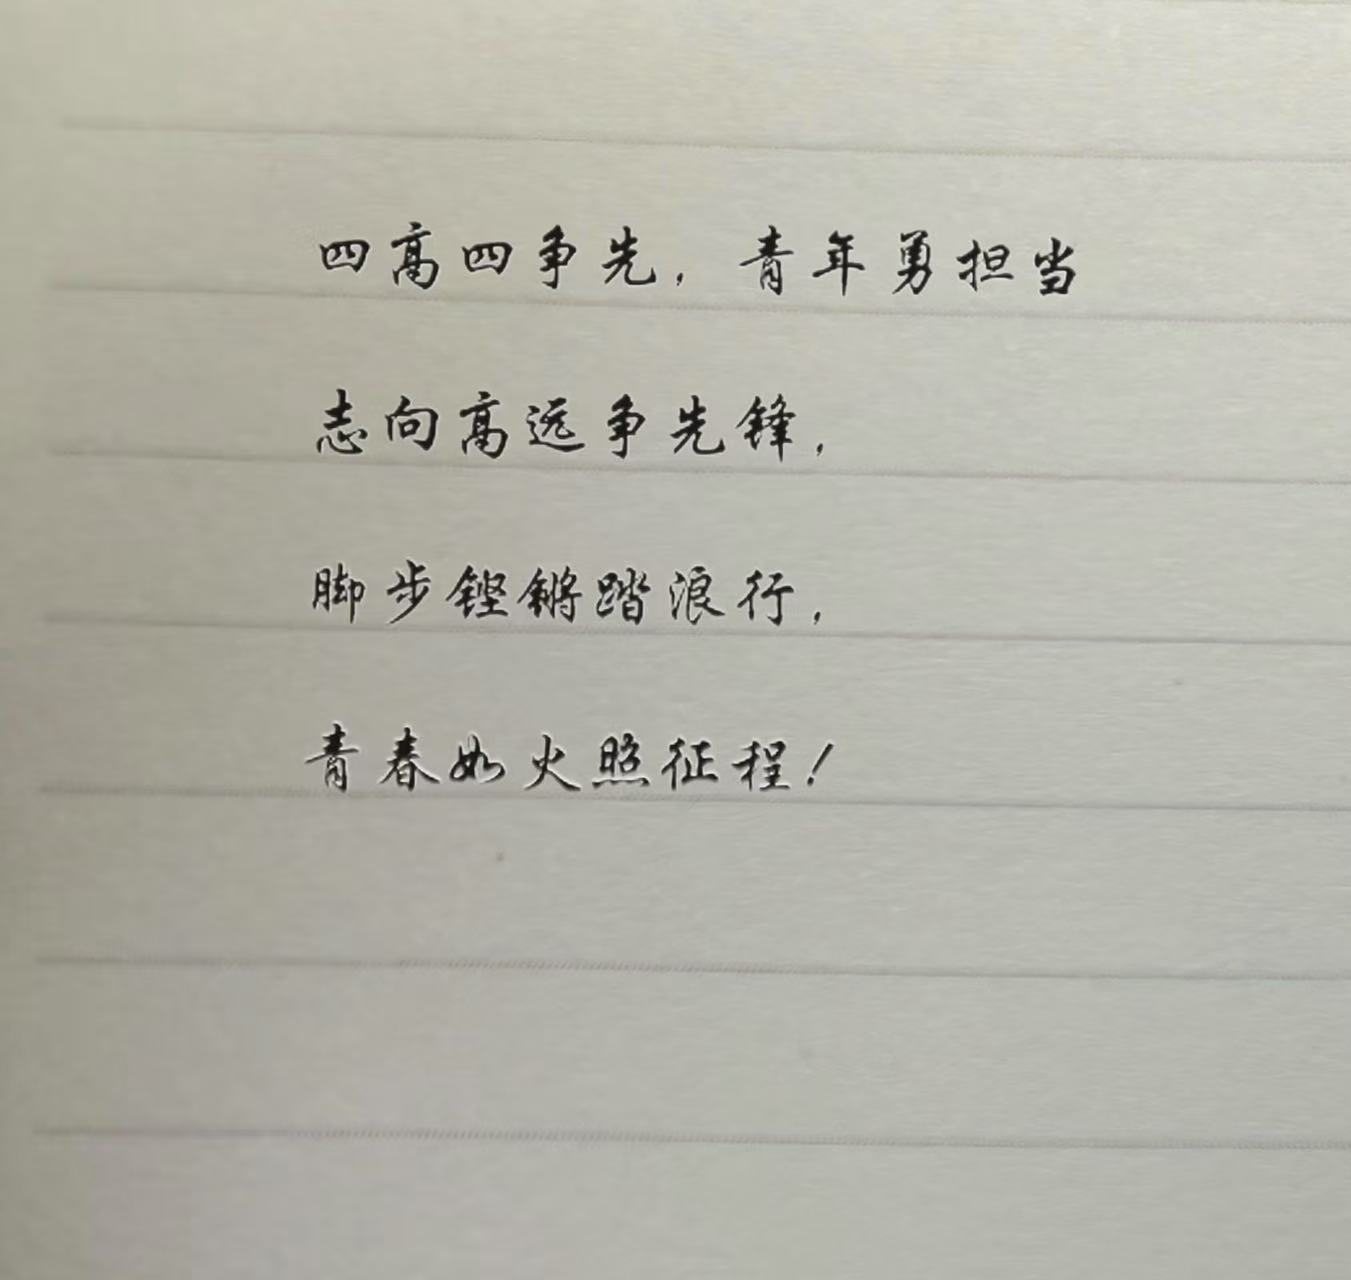 四高四争先，青年勇担当
志向高远争先锋，
脚步铿锵踏浪行，
青春如火照征程！